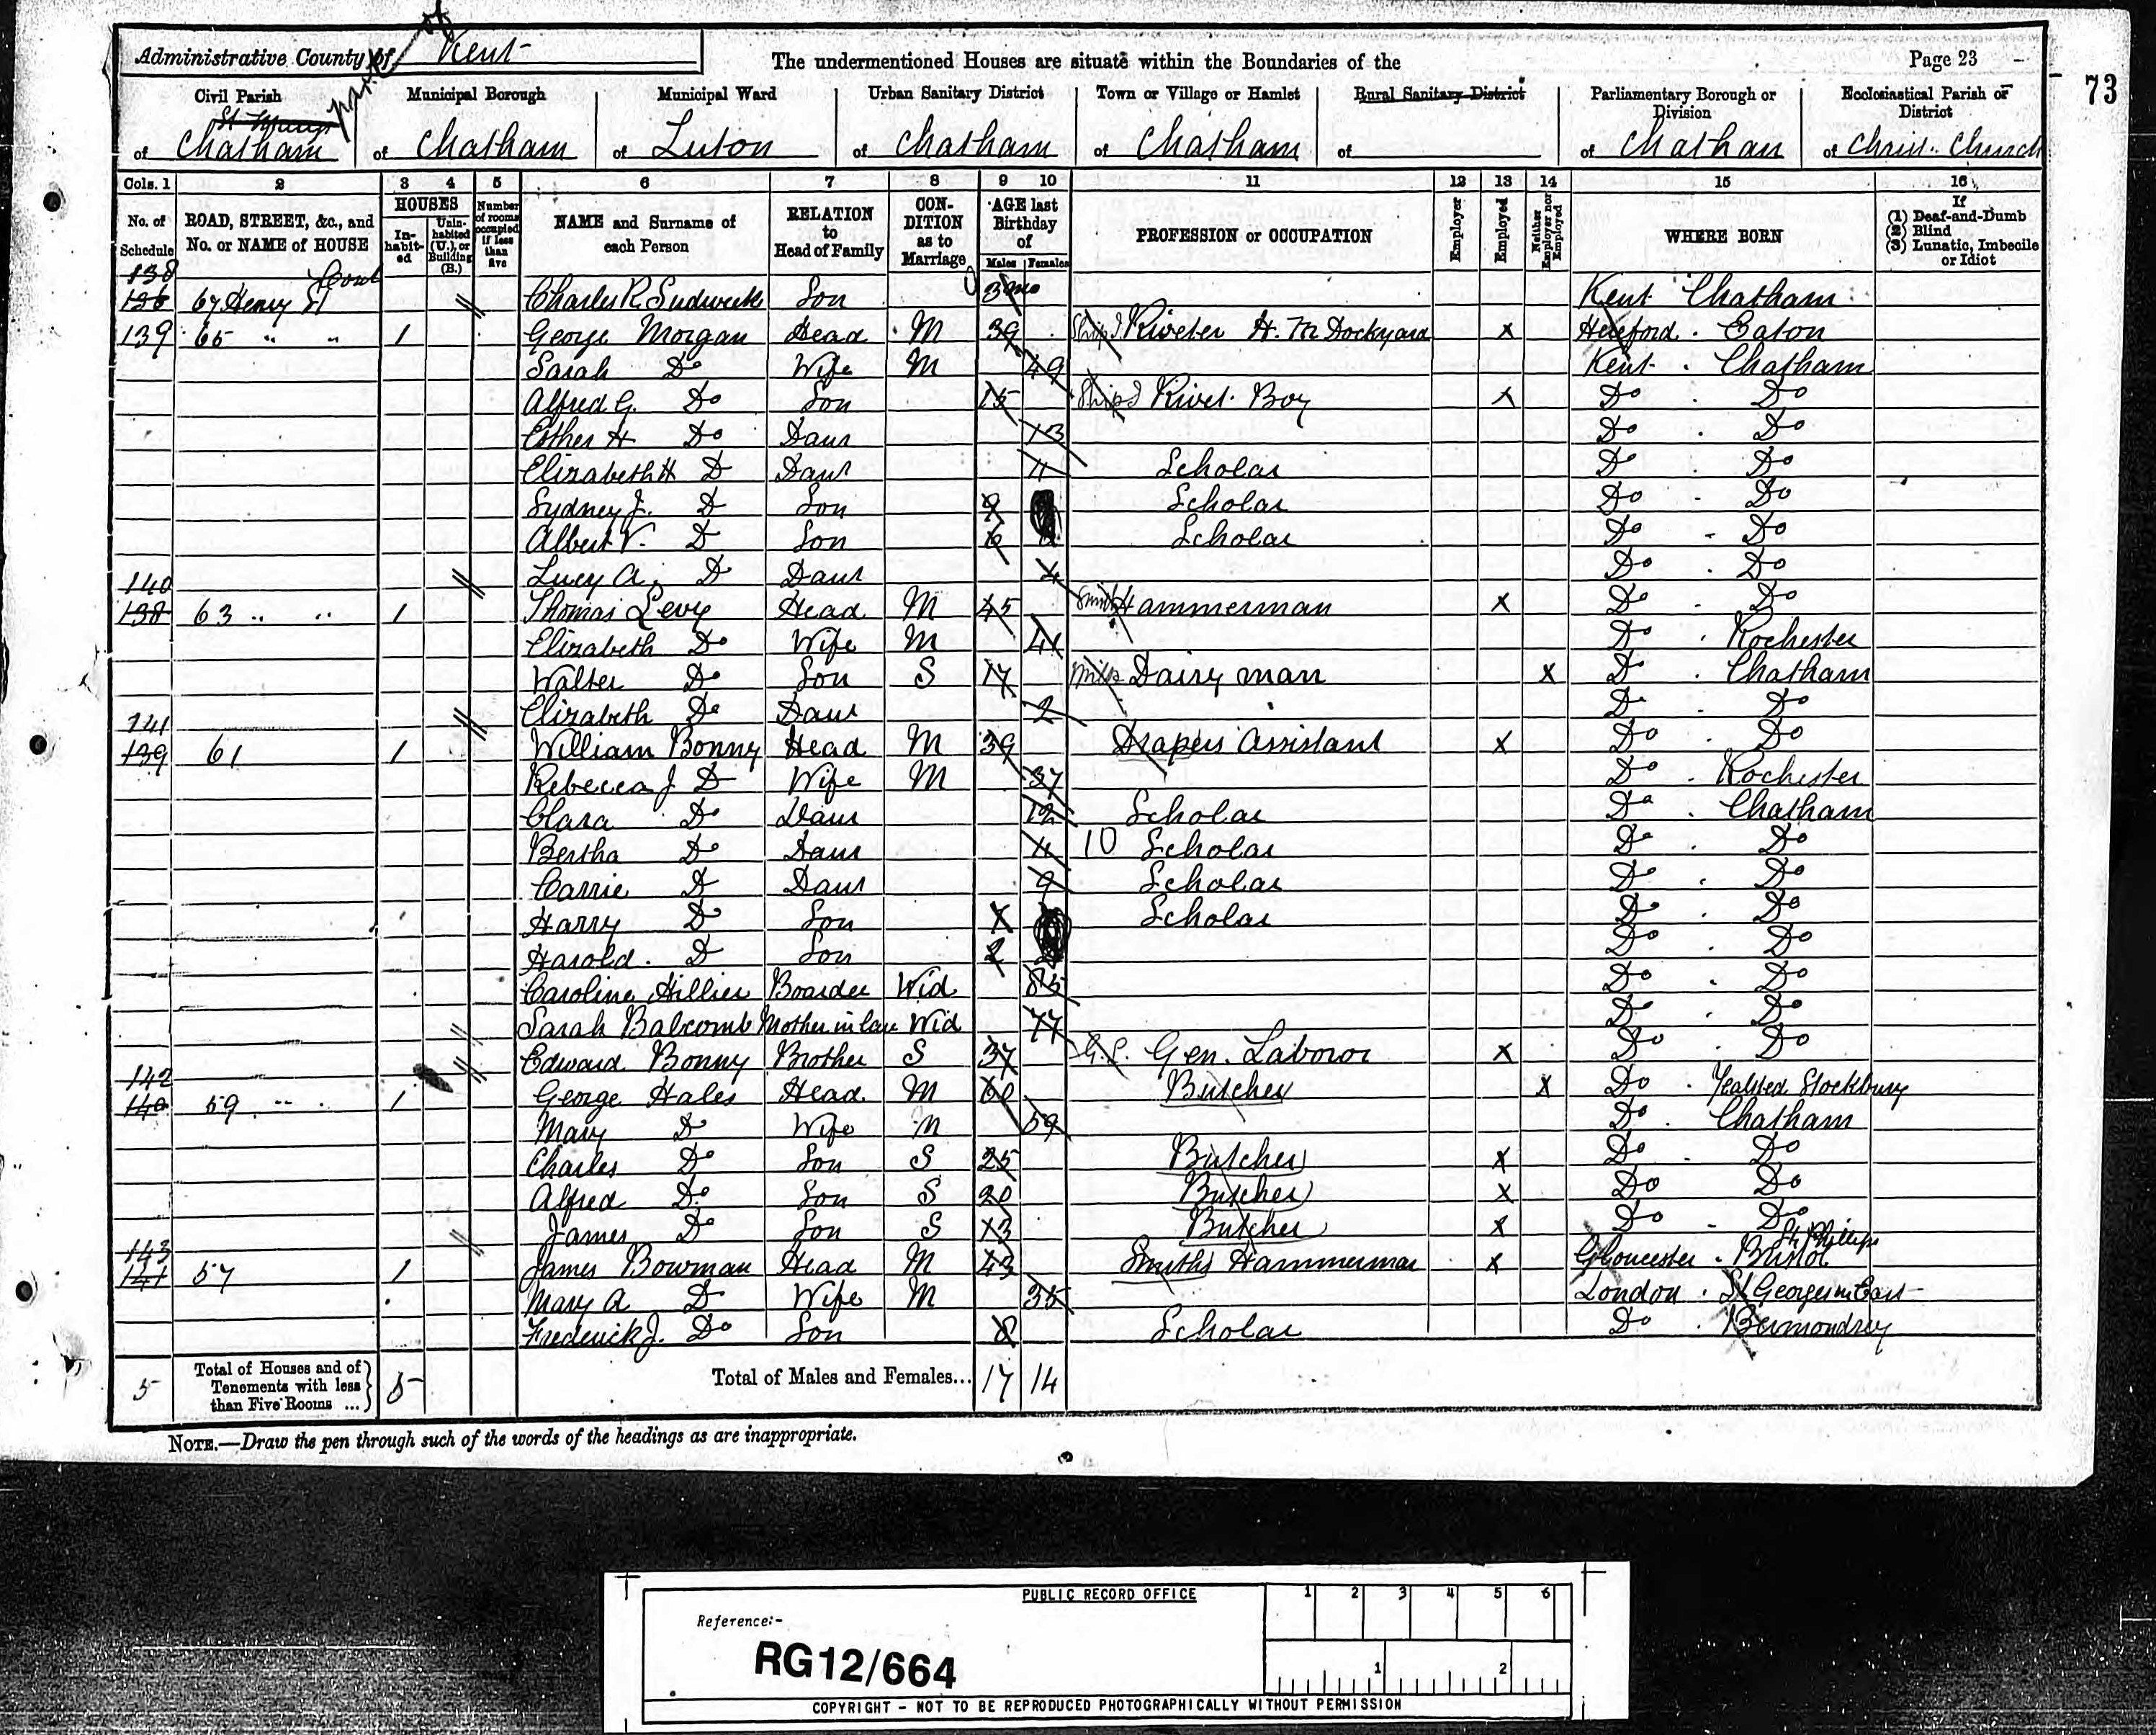 Administrative County of Kent
part of
The undermentioned Houses are situate within the Boundaries of the
Page 23
73
Civil Parish
St Mary
of Chatham
Municipal Borough
of Chatham
Municipal Ward
of Luton
Urban Sanitary District
of Chatham
Town or Village or Hamlet
of Chatham
Rural Sanitary District
of
Parliamentary Borough or Division
of Chatham
Ecclesiastical Parish or District
of Christ Church
Cols. 1 2 3 4 5 6 7 8 9 10 11 12 13 14 15 16
No. of Schedule
ROAD, STREET, &c., and No. or NAME of HOUSE
HOUSES
Inhabited
Uninhabited (U.), or Building (B.)
Number of rooms occupied if less than five
NAME and Surname of each Person
RELATION to Head of Family
CONDITION as to Marriage
AGE last Birthday of
Males Females
PROFESSION or OCCUPATION
Employer
Employed
Neither Employer nor Employed
WHERE BORN
If
(1) Deaf-and-Dumb
(2) Blind
(3) Lunatic, Imbecile or Idiot
138 136 67 Henry St Cont Charles R. Sudweeks Son Kent Chatham
139 65 " " 1 George Morgan Head M 39 Ship Riveter H. M Dockyard X Hereford . Eaton
Sarah Do Wife M 49 Kent . Chatham
Alfred G. Do Son 15 Ship Rivet Boy X Do . Do
Esther H Do Daur 13 Do . Do
Elizabeth H D Daur 11 Scholar Do . Do
Sydney J. D Son 9 Scholar Do - Do
Albert V. D Son 6 Scholar Do - Do
Lucy A. D Daur 4 Do . Do
140 138 63 " " 1 Thomas Levy Head M 45 Smith Hammerman X Do - Do
Elizabeth Do Wife M 41 Do . Rochester
Walter Do Son S 17 Milk Dairy man X Do . Chatham
Elizabeth Do Daur 2 Do . Do
141 139 61 1 William Bonny Head M 39 Drapers Assistant X Do . Do
Rebecca J D Wife M 37 Do . Rochester
Clara Do Daur 12 Scholar Do . Chatham
Bertha Do Daur 11 10 Scholar Do . Do
Carrie D Daur 9 Scholar Do . Do
Harry Do Son Scholar Do . Do
Harold . D Son 2 Do . Do
Caroline Hillier Boarder Wid 85 Do . Do
Sarah Balcomb Mother in law Wid 77 Do . Do
Edward Bonny Brother S 37 G.L. Gen. Laboror X Do . Do
142 140 59 " . 1 George Hales Head M 60 Butcher X Do . Yealsted Stockbury
Mary D Wife M 59 Do . Chatham
Charles Do Son S 25 Butcher X Do . Do
Alfred Do Son S 20 Butcher X Do Do
James Do Son S 13 Butcher X Do - Do
143 141 57 1 James Bowman Head M 43 Smiths Hammerman X Gloucester . Bristol St Philips
Mary A D Wife M 35 London . St Georges in East
Frederick J. Do Son 8 Scholar Do . Bermondsey
5 Total of Houses and of Tenements with less than Five Rooms ... 5
Total of Males and Females... 17 14
NOTE.—Draw the pen through such of the words of the headings as are inappropriate.
PUBLIC RECORD OFFICE
1 2 3 4 5 6
Reference:-
RG12/664
1 2
COPYRIGHT - NOT TO BE REPRODUCED PHOTOGRAPHICALLY WITHOUT PERMISSION